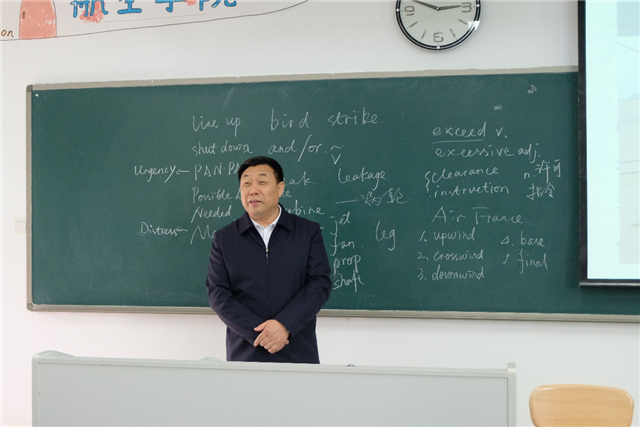 航空学院
on
line up bird strike
shut down and/or ~
v
Urgency ← PAN PA
leakage
Possible
Needed
bine
Distress ← M
jet
fan
prop
shaft
leg
exceed v.
excessive adj.
clearance n. 许可
instruction 指令
Air France
1. upwind 4. base
2. crosswind 5. final
3. downwind